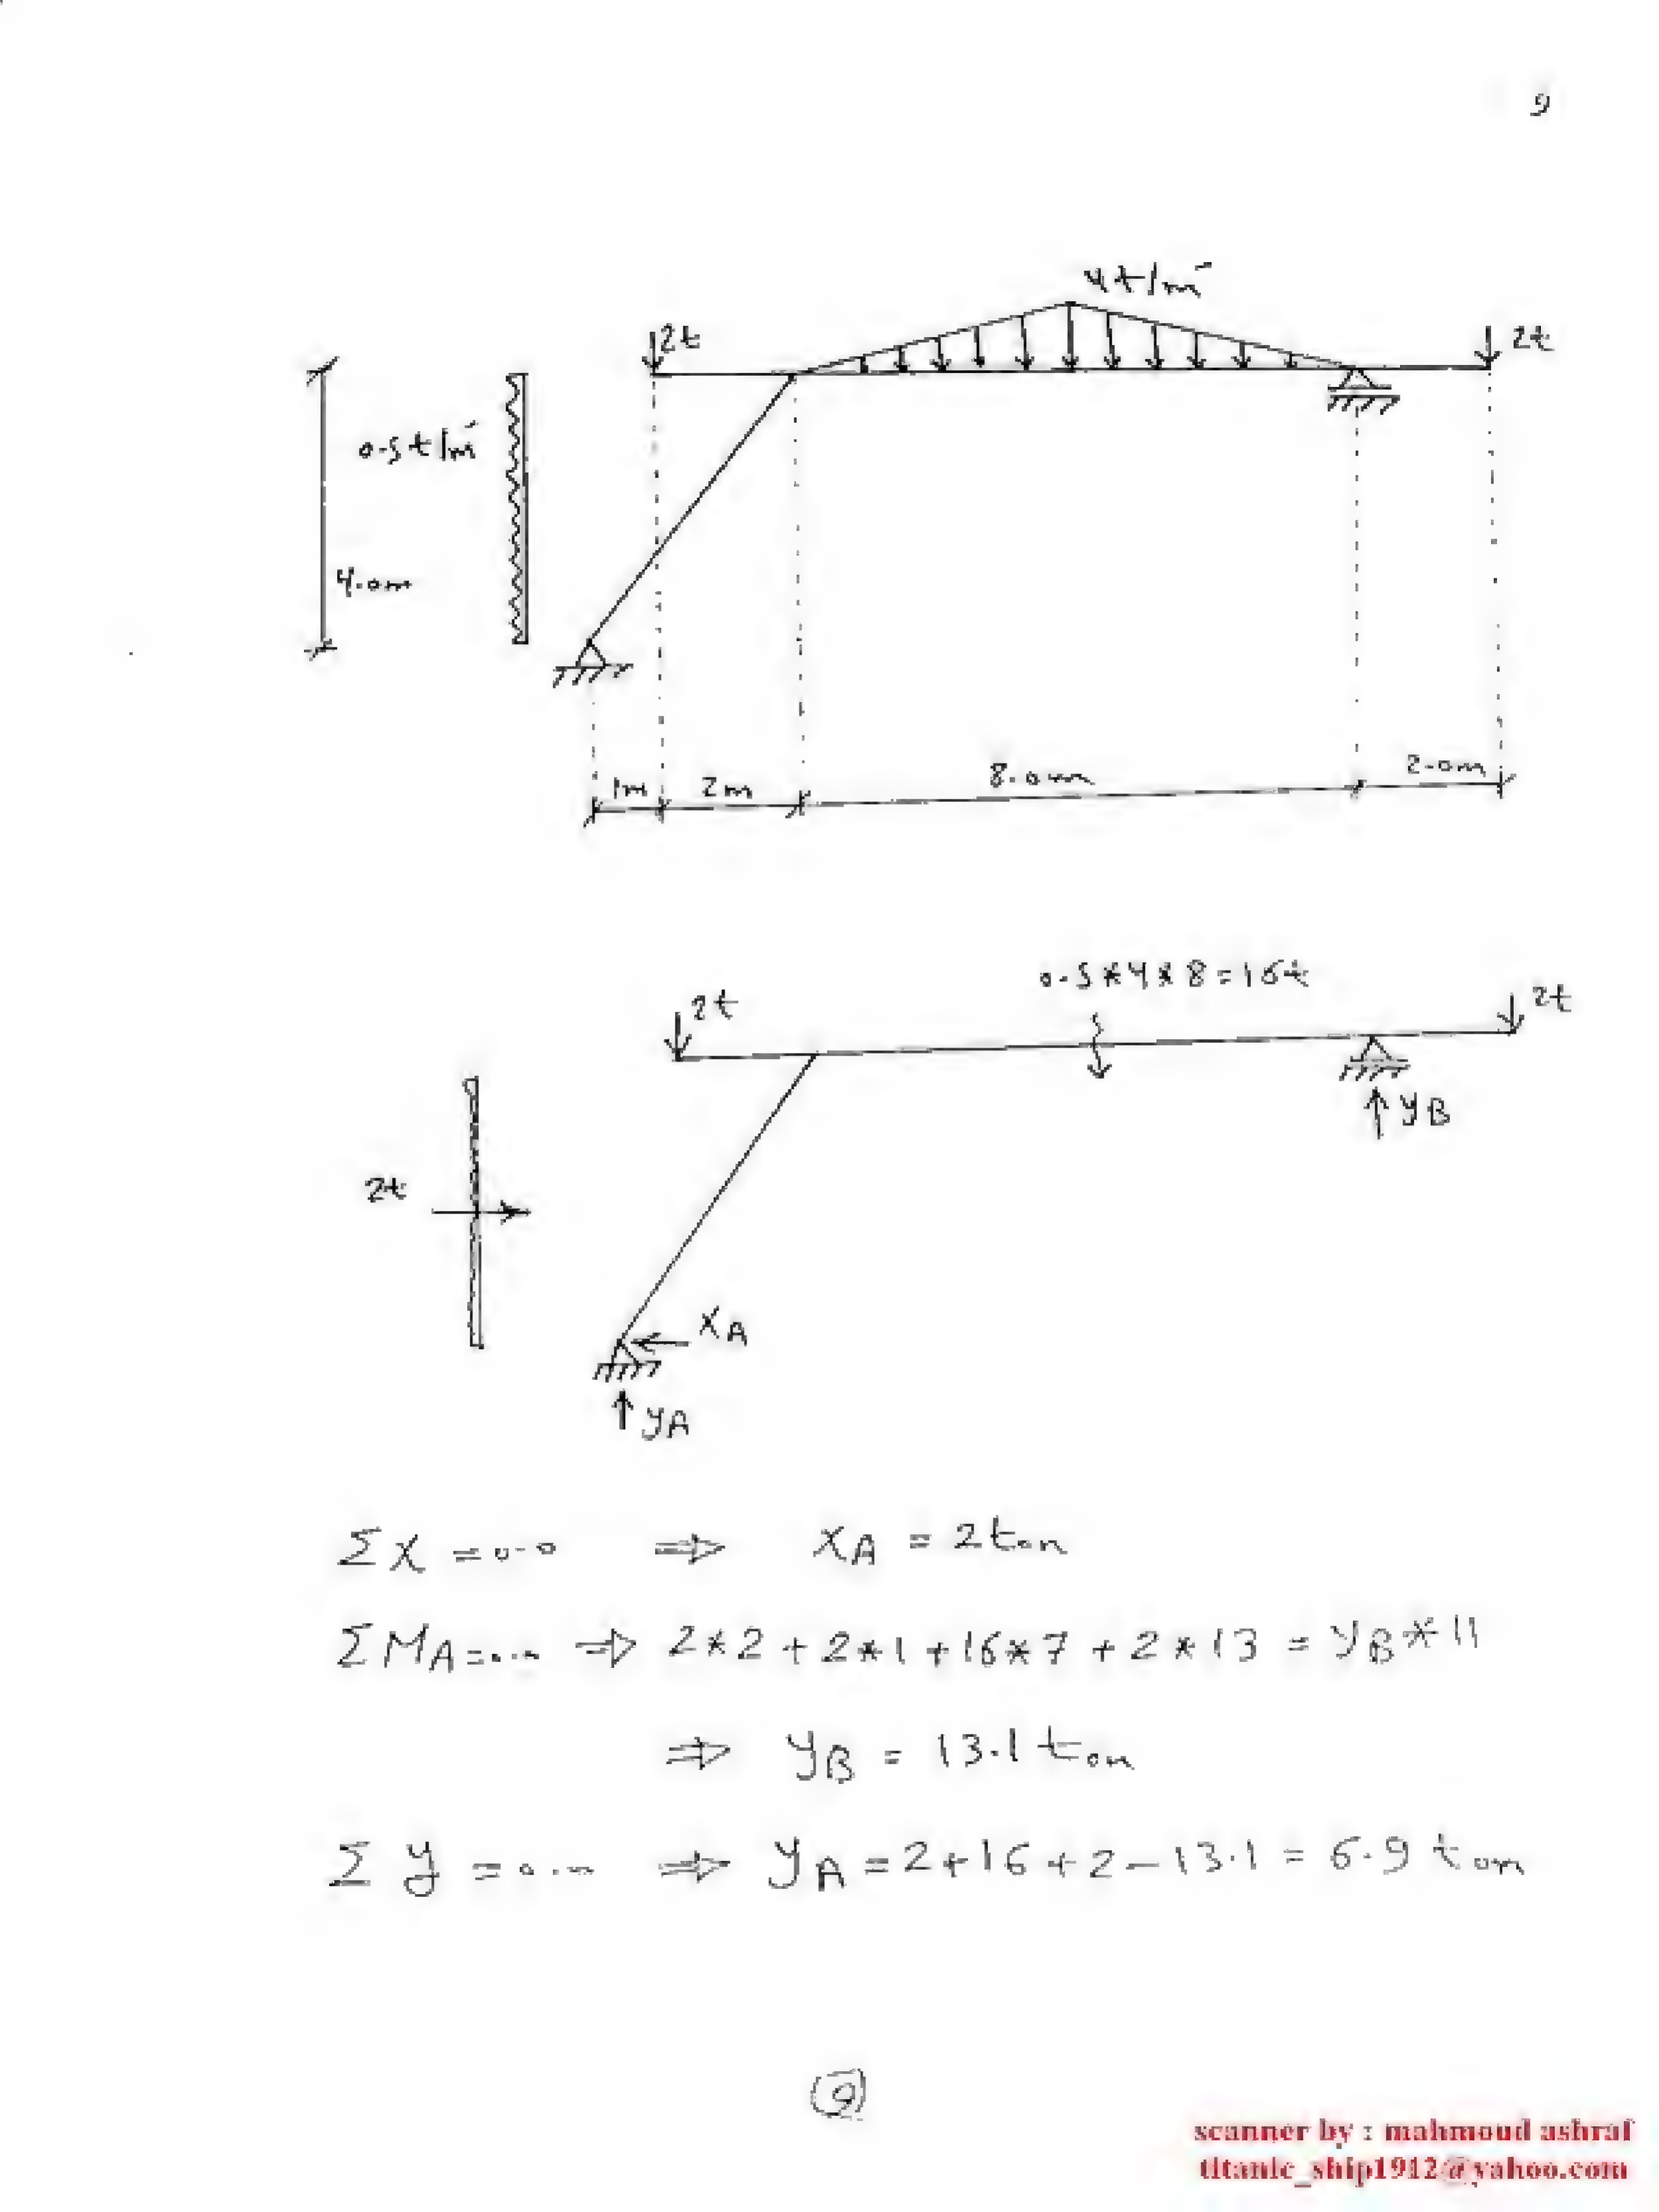 9
4t/m`
2t
2t
0.5t/m`
4.0m
1m 2m 8.0m 2.0m
0.5*4*8=16t
2t
2t
yB
2t
XA
yA
ΣX =0.0 ⇒ XA = 2ton
ΣMA=0.0 ⇒ 2*2 + 2*1 + 16*7 + 2*13 = yB*11
⇒ yB = 13.1 ton
Σy =0.0 ⇒ yA =2+16+2-13.1 = 6.9 ton
9
scanner by : mahmoud ashraf
titanic_ship1912@yahoo.com